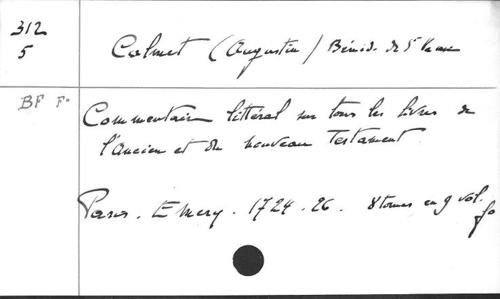 312
5
Calmet (Augustin) Bénéd. de St Vanne
BF F°
Commentaire littéral sur tous les livres de
l'Ancien et du nouveau Testament
Paris. Emery. 1724-26. 8 tomes en 9 vol.
f°